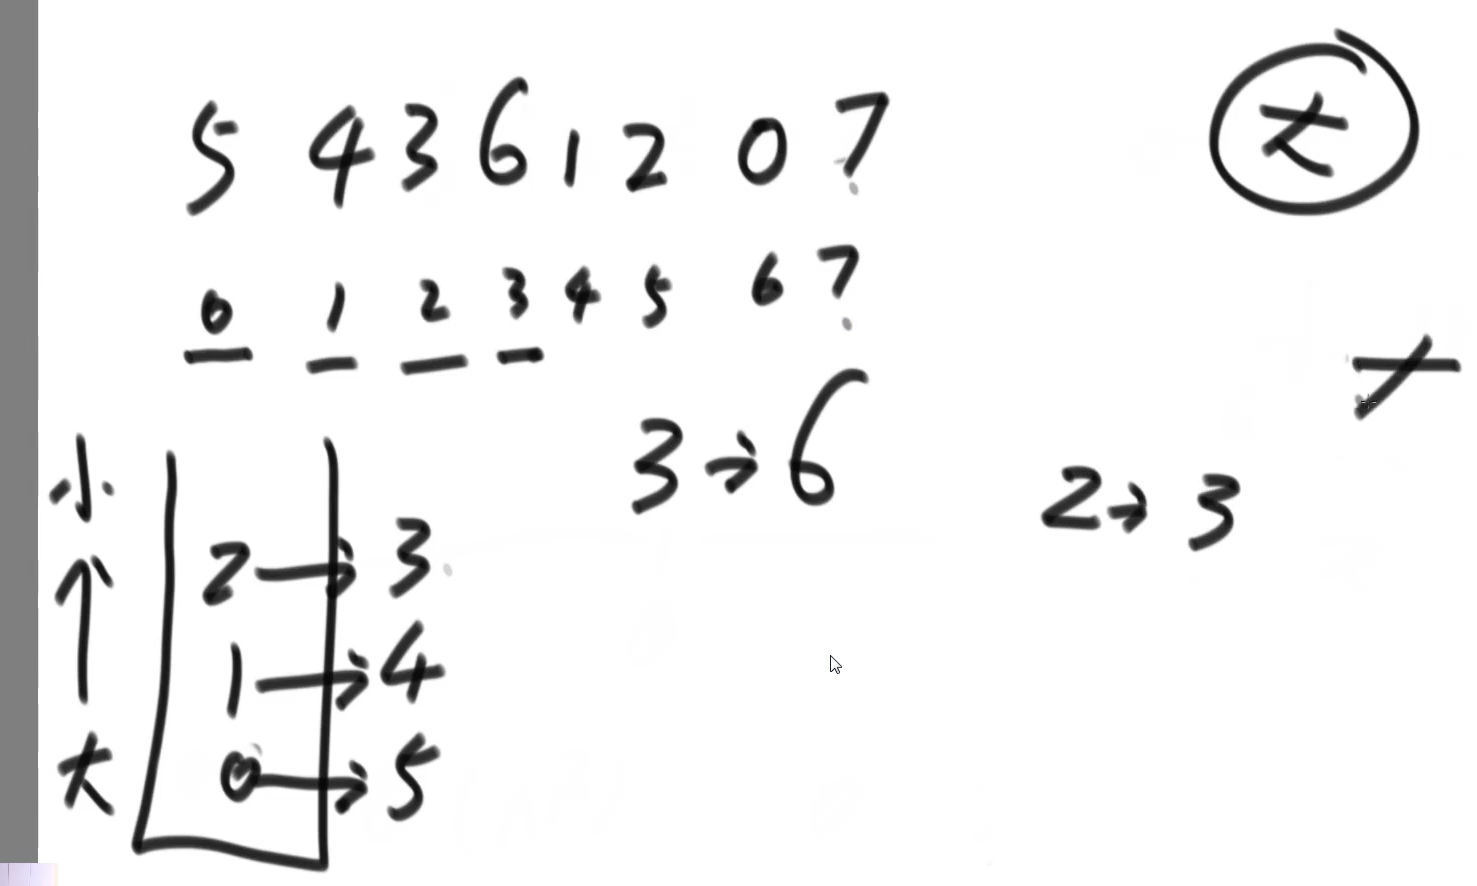 5 4 3 6 1 2 0 7
大
0 1 2 3 4 5 6 7
3→6
2→3
小
↑
大
2→3
1→4
0→5